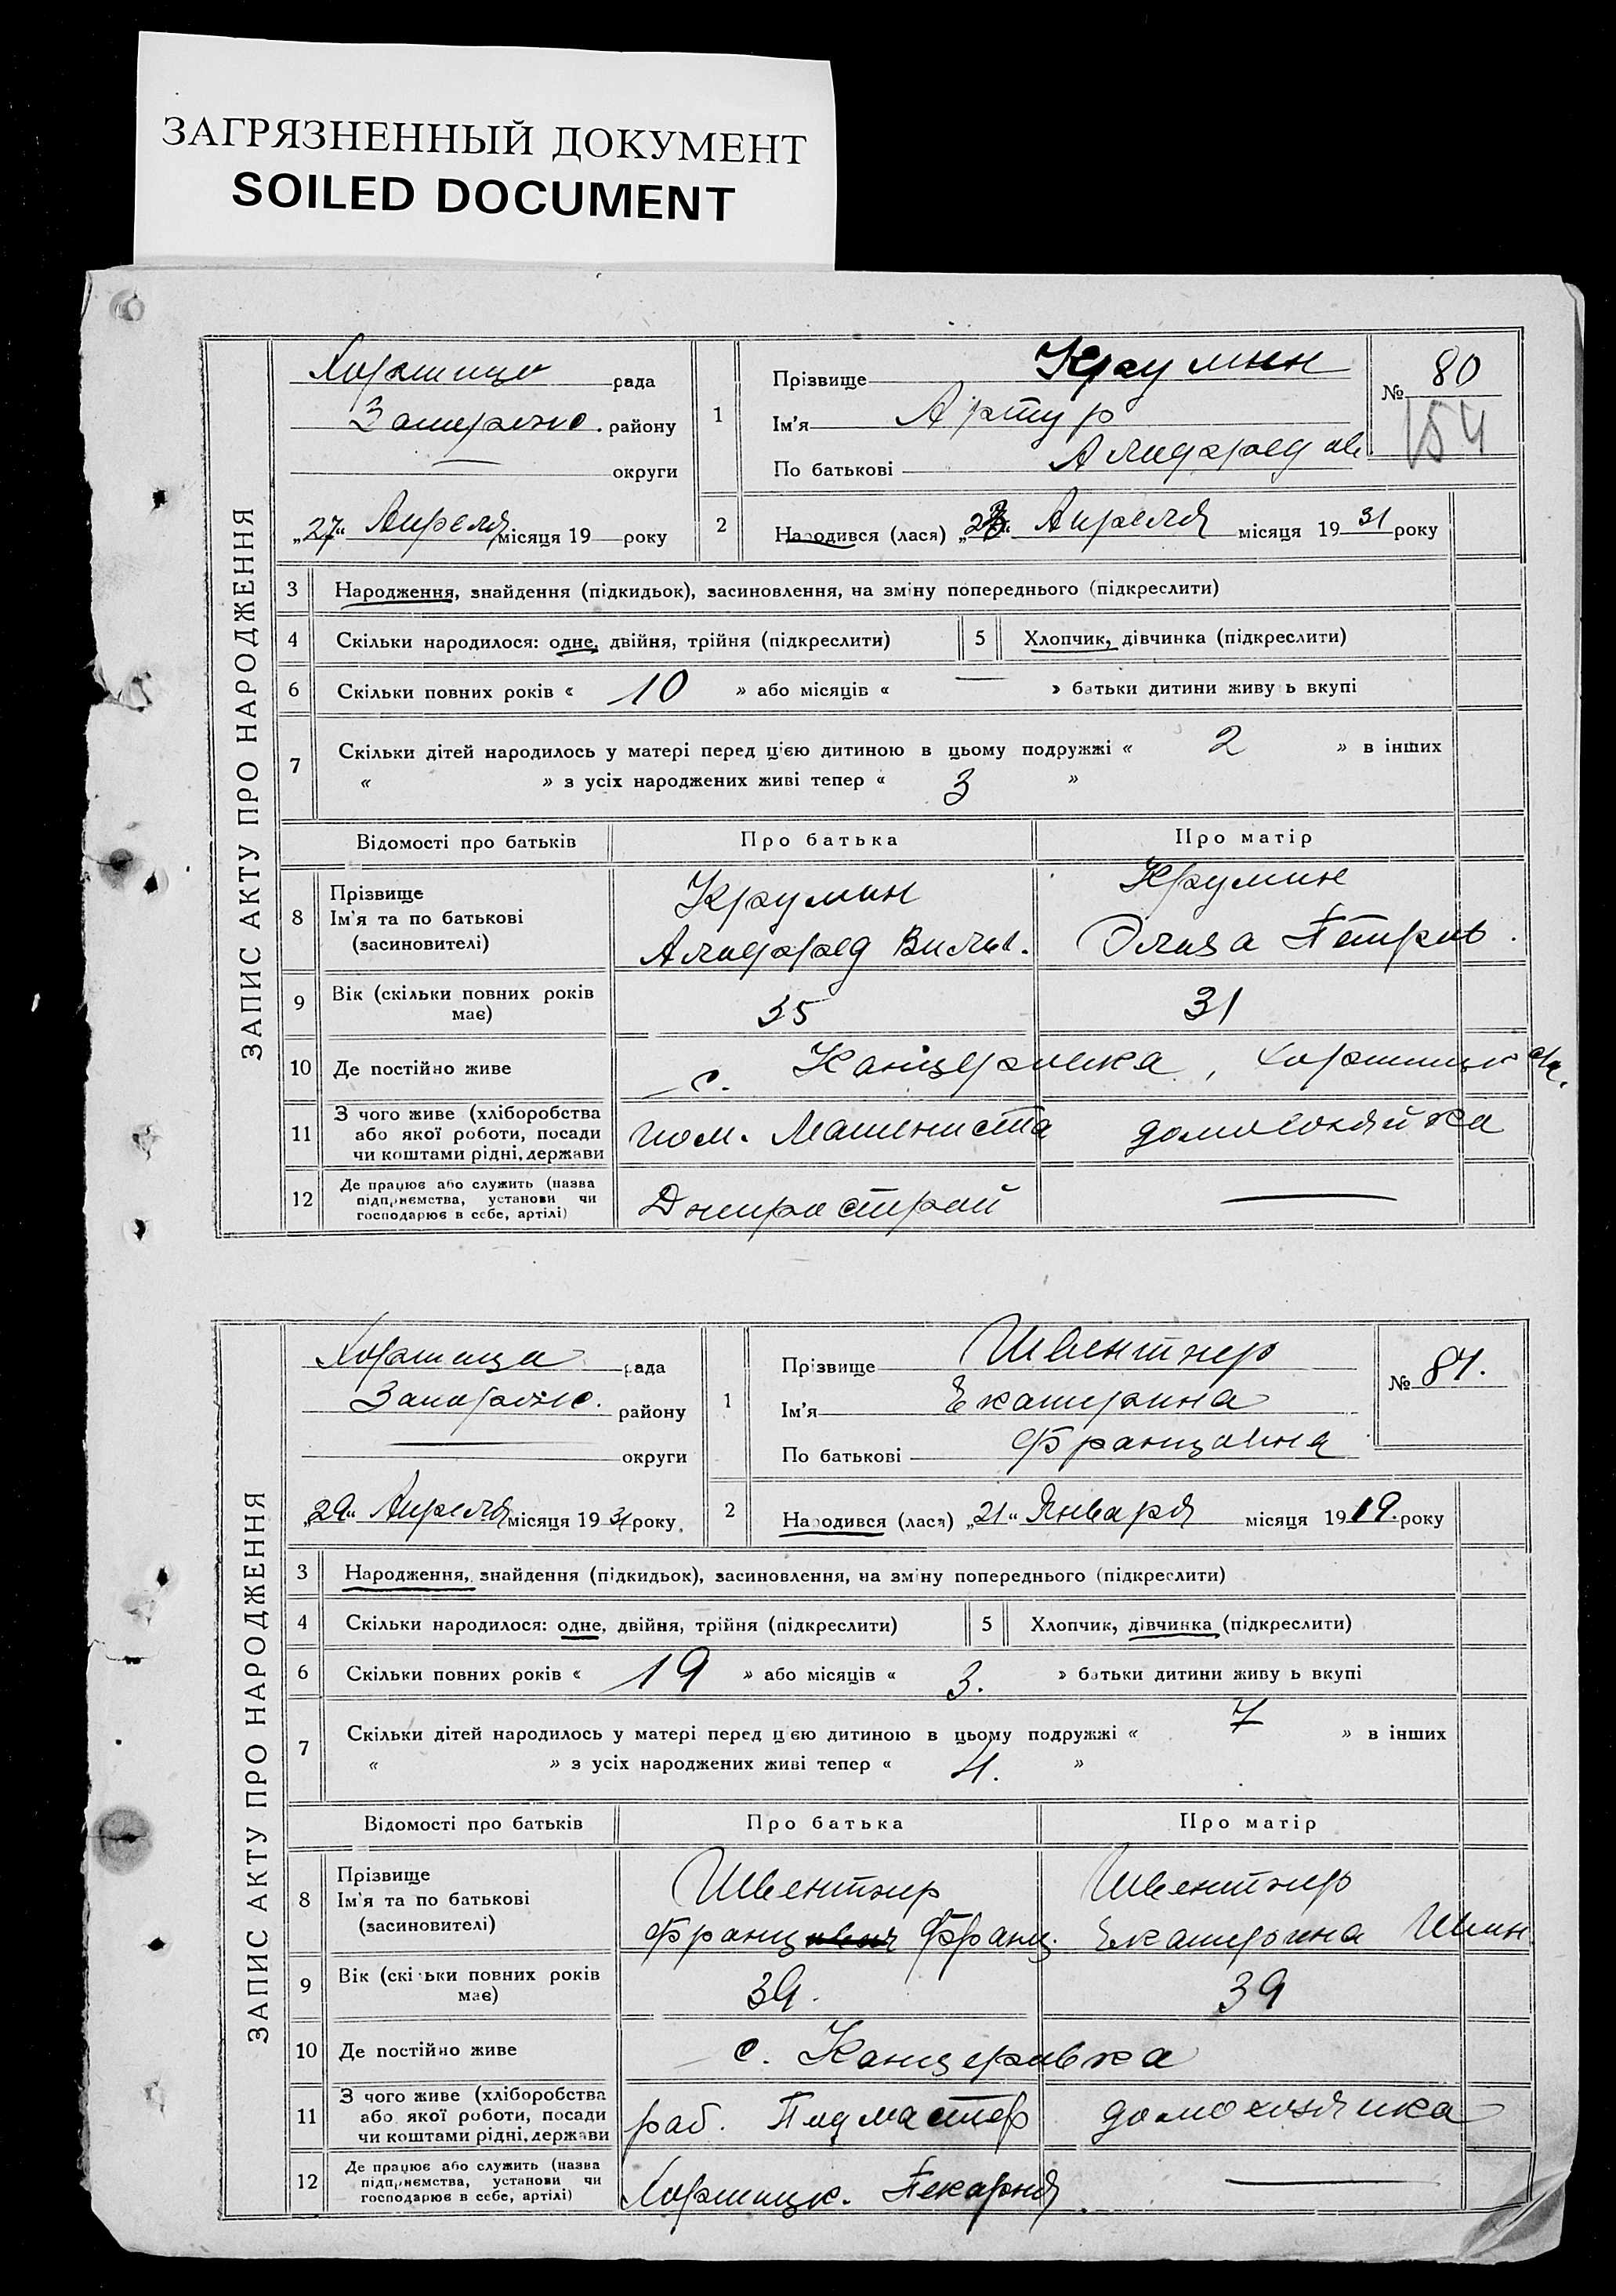 ЗАГРЯЗНЕННЫЙ ДОКУМЕНТ
SOILED DOCUMENT
ЗАПИС АКТУ ПРО НАРОДЖЕННЯ
Хортица рада
Запорожс. району
— округи
„27“ Апреля місяця 19 року
1
Прізвище Крумин
Ім'я Артур
По батькові Альфредов
№ 80
154
2
Народився (лася) Апреля місяця 19 31 року
3 Народження, знайдення (підкидьок), засиновлення, на зміну попереднього (підкреслити)
4 Скільки народилося: одне, двійня, трійня (підкреслити) 5 Хлопчик, дівчинка (підкреслити)
6 Скільки повних років « 10 » або місяців « — » батьки дитини живуть вкупі
7 Скільки дітей народилось у матері перед цією дитиною в цьому подружжі « 2 » в інших
« » з усіх народжених живі тепер « 3 »
Відомості про батьків Про батька Про матір
8 Прізвище Ім'я та по батькові (засиновителі)
Крумин Крумин
Альфред Вильг. Элиза Петров.
9 Вік (скільки повних років має) 35 31
10 Де постійно живе с. Канцеровка, Хортицк.
11 З чого живе (хліборобства або якої роботи, посади чи коштами рідні, держави пом. Машениста домохозяйка
12 Де працює або служить (назва підприємства, установи чи господарює в себе, артілі) Днипрострой —
ЗАПИС АКТУ ПРО НАРОДЖЕННЯ
Хортица рада
Запорожс. району
— округи
„29“ Апреля місяця 19 31 року
1
Прізвище Швентнер
Ім'я Екатерина
По батькові Францовна
№ 81.
2
Народився (лася) „21“ Января місяця 19 19. року
3 Народження, знайдення (підкидьок), засиновлення, на зміну попереднього (підкреслити)
4 Скільки народилося: одне, двійня, трійня (підкреслити) 5 Хлопчик, дівчинка (підкреслити)
6 Скільки повних років « 19 » або місяців « 3. » батьки дитини живуть вкупі
7 Скільки дітей народилось у матері перед цією дитиною в цьому подружжі « 7 » в інших
« » з усіх народжених живі тепер « 4. »
Відомості про батьків Про батька Про матір
8 Прізвище Ім'я та по батькові (засиновителі)
Швентнер Швентнер
Франц Франц. Екатерина
9 Вік (скільки повних років має) 39. 39
10 Де постійно живе с. Канцеровка
11 З чого живе (хліборобства або якої роботи, посади чи коштами рідні, держави раб. Подмастер домохозяика
12 Де працює або служить (назва підприємства, установи чи господарює в себе, артілі) Хортицк. Пекарня —